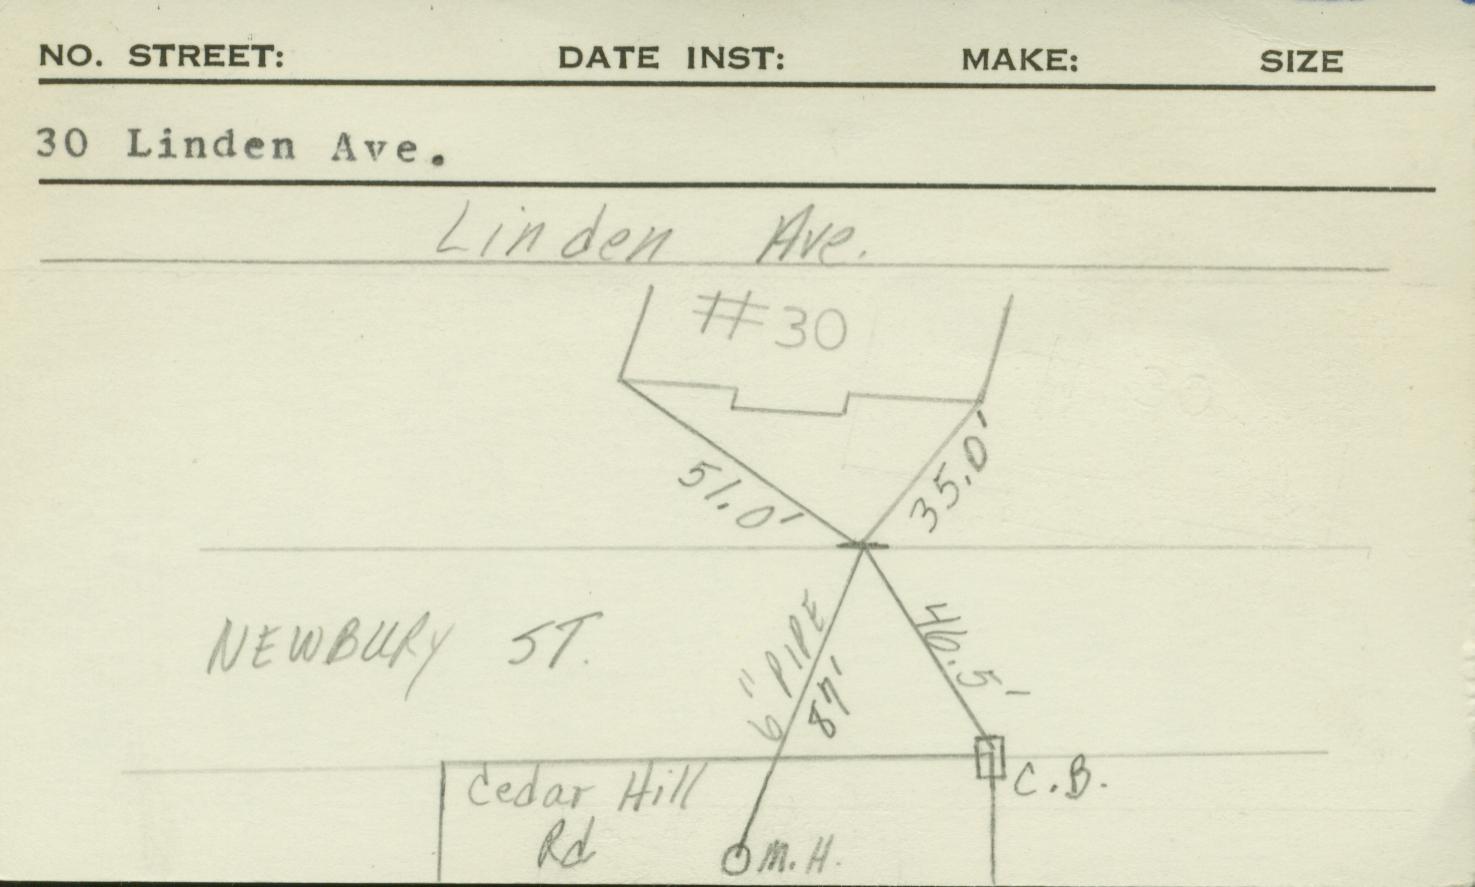 NO. STREET: DATE INST: MAKE: SIZE
30 Linden Ave.
Linden Ave.
#30
51.0'
35.0'
NEWBURY ST.
6" PIPE
87'
46.5'
Cedar Hill
Rd
C.B.
M.H.